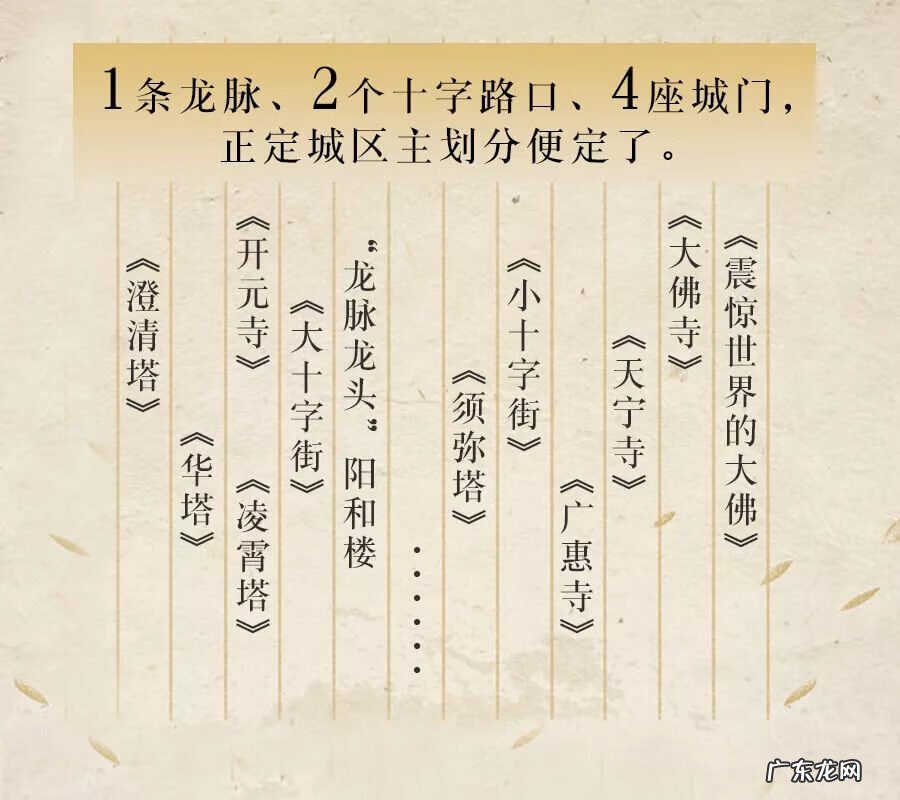 1条龙脉、2个十字路口、4座城门，
正定城区主划分便定了。
《震惊世界的大佛》
《大佛寺》
《天宁寺》
《广惠寺》
《小十字街》
《须弥塔》
······
“龙脉龙头”阳和楼
《大十字街》
《开元寺》
《凌霄塔》
《华塔》
《澄清塔》
广东龙网